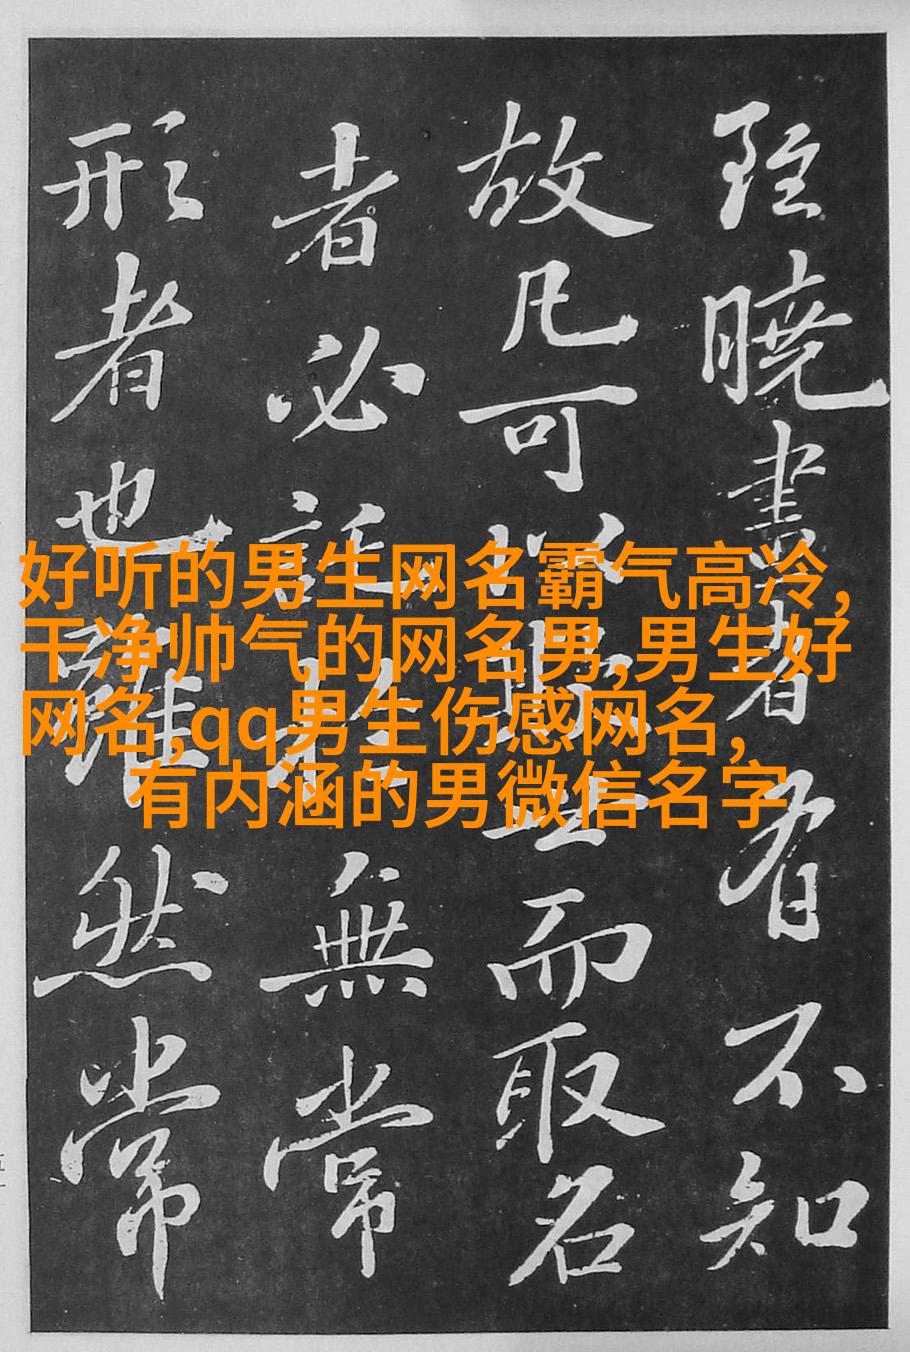 雖曉畫者有不知
故凡可以欺世而取名
者必託於無常
形者也雖然常
好听的男生网名霸气高冷,
干净帅气的网名男,男生好
网名,qq男生伤感网名,
有内涵的男微信名字